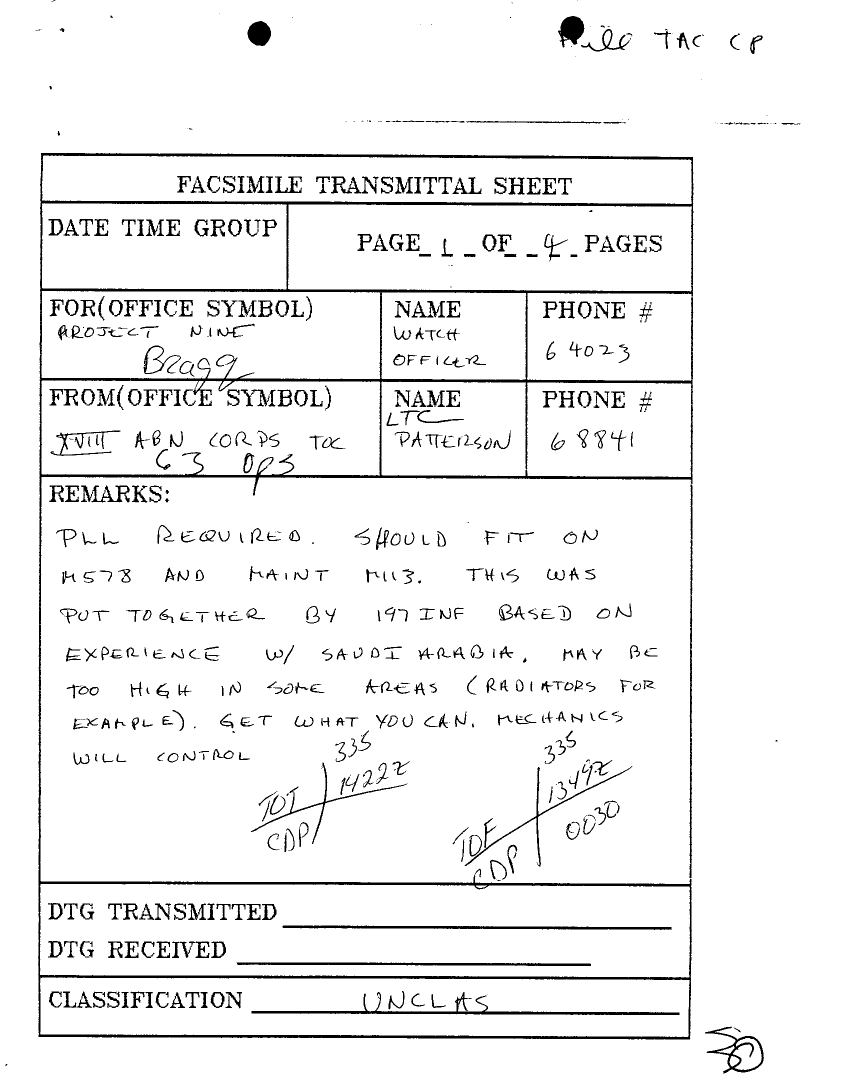 TAC CP
FACSIMILE TRANSMITTAL SHEET
DATE TIME GROUP
PAGE 1 OF 4 PAGES
FOR(OFFICE SYMBOL) NAME PHONE #
PROJECT NINE WATCH
Bragg OFFICER 64023
FROM(OFFICE SYMBOL) NAME PHONE #
LTC
XVIII ABN CORPS TOC PATTERSON 68841
G3 OPS
REMARKS:
PLL REQUIRED. SHOULD FIT ON
M578 AND MAINT M113. THIS WAS
PUT TOGETHER BY 197 INF BASED ON
EXPERIENCE W/ SAUDI ARABIA. MAY BE
TOO HIGH IN SOME AREAS (RADIATORS FOR
EXAMPLE). GET WHAT YOU CAN. MECHANICS
WILL CONTROL
335 335
TOT 1422Z 1349Z
CDP TOF 0030
CDP
DTG TRANSMITTED
DTG RECEIVED
CLASSIFICATION UNCLAS